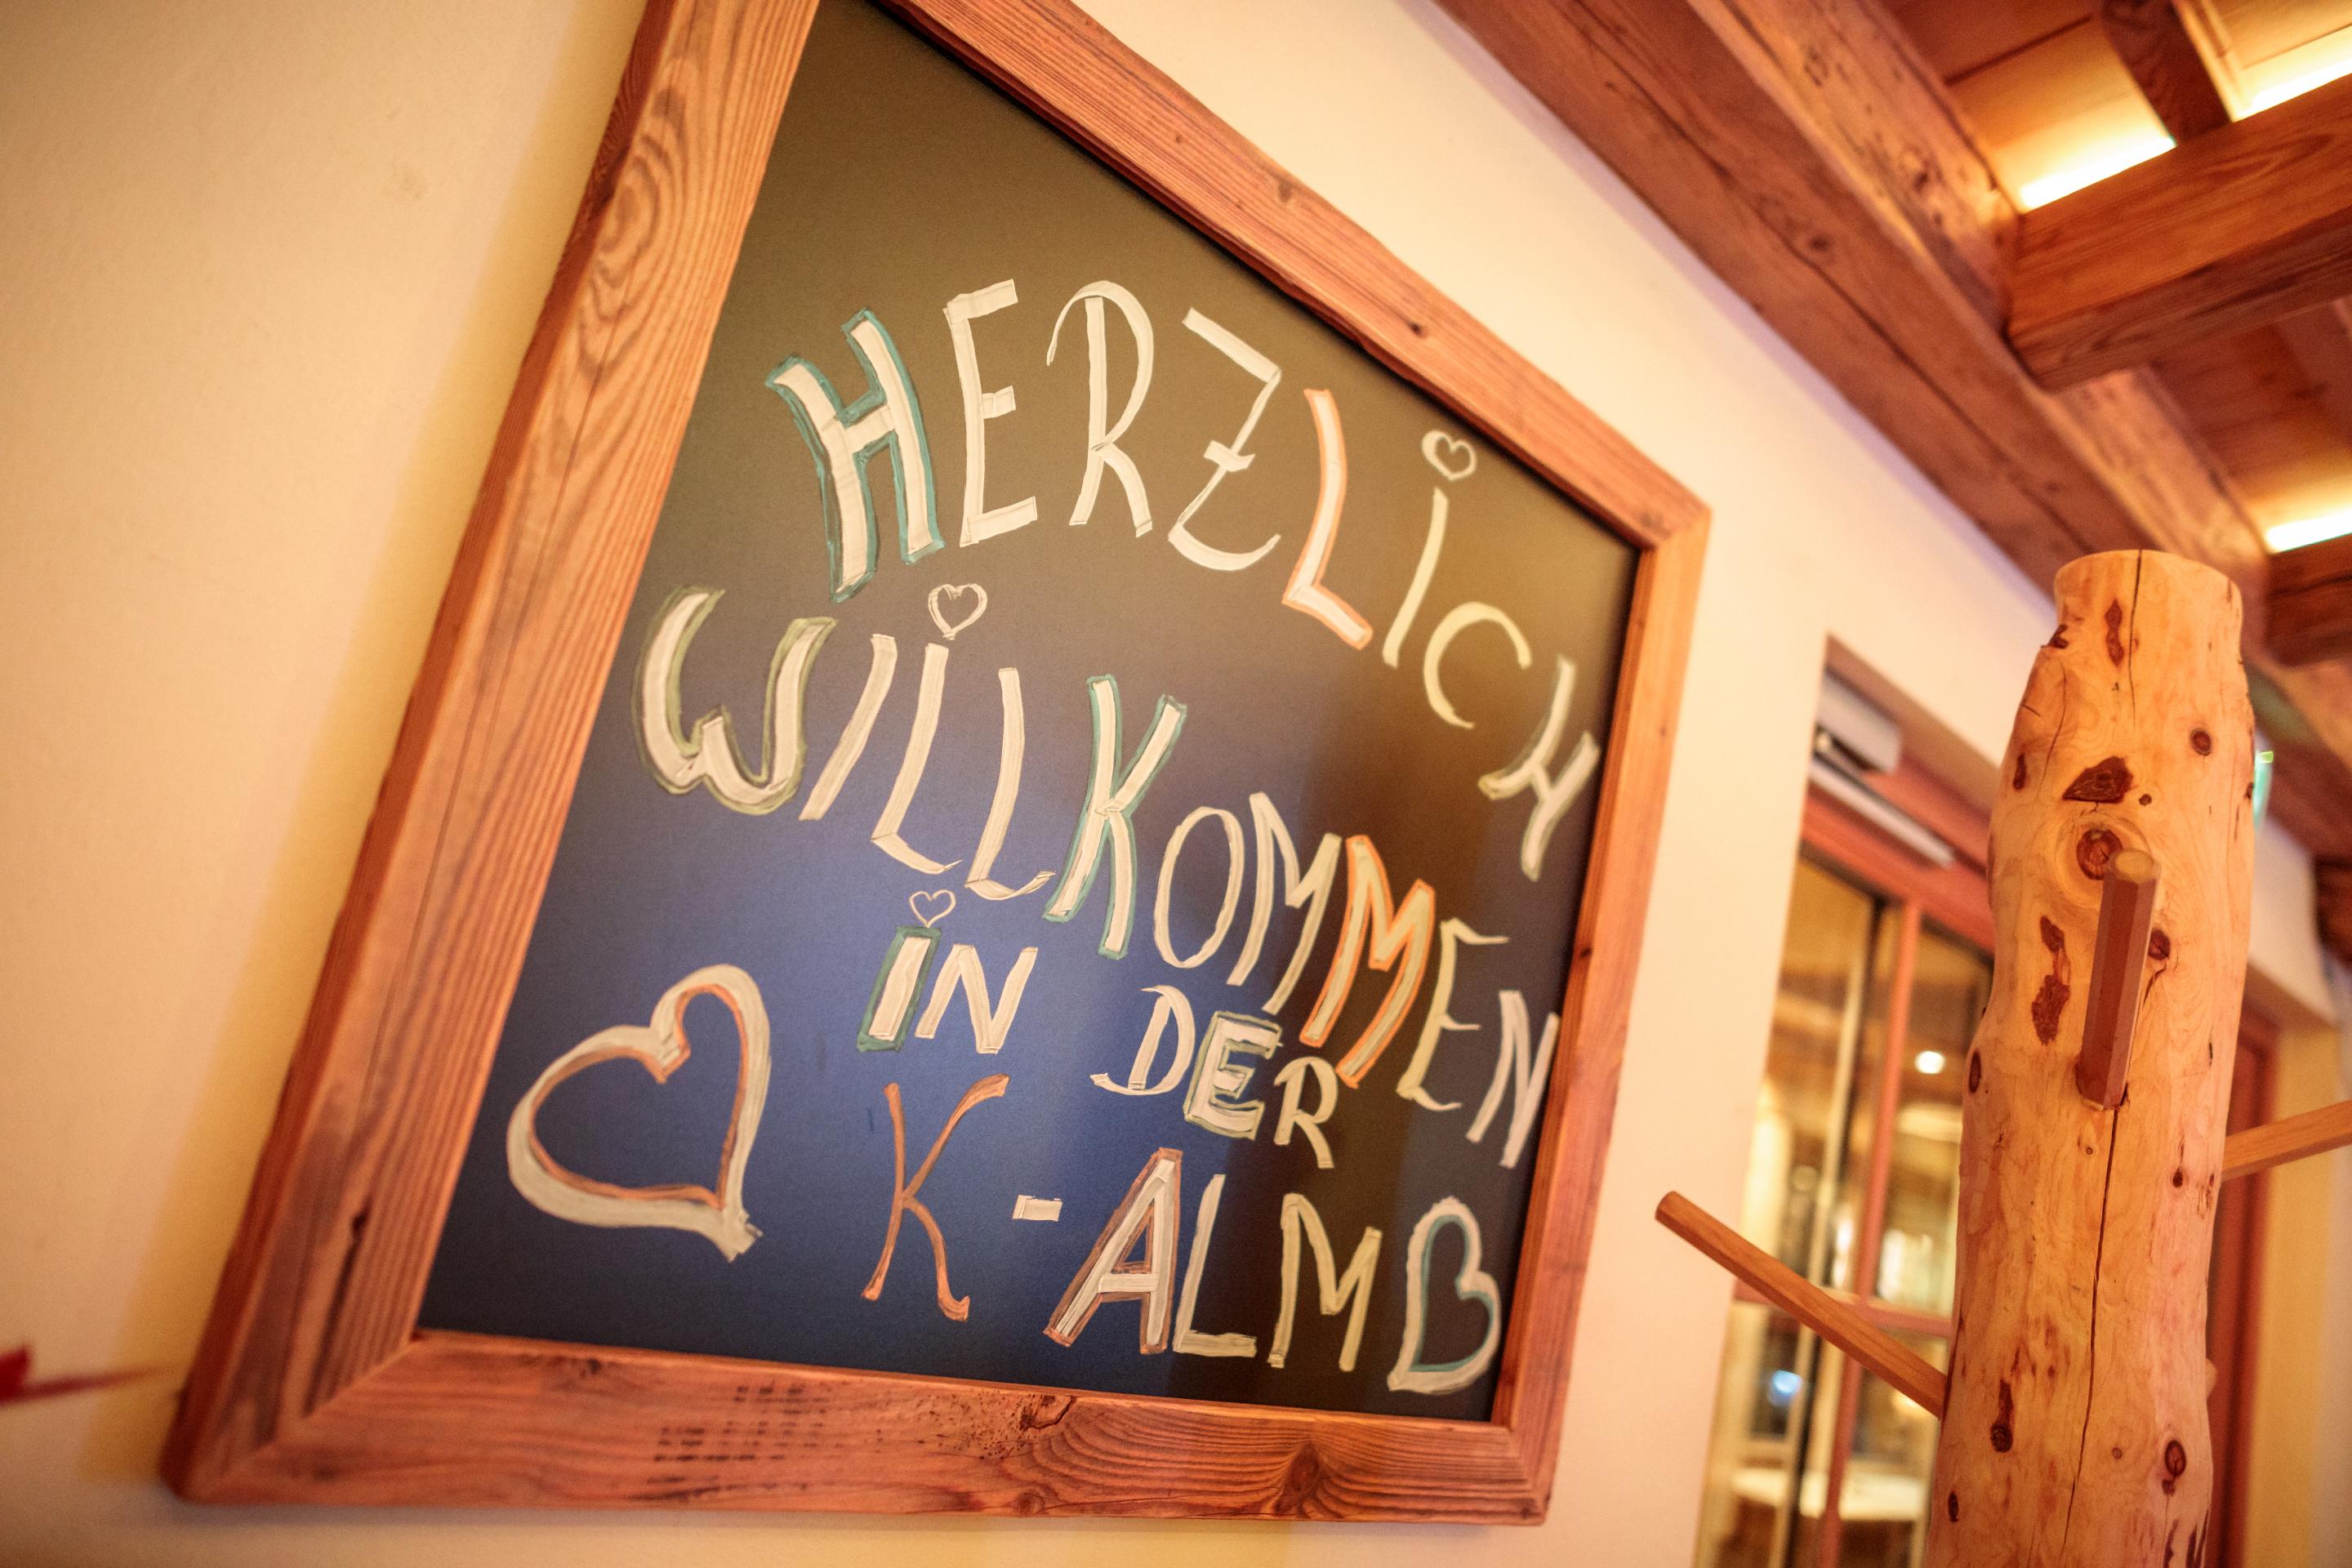 HERZLiCH
WiLLKOMMEN
iN DER
K-ALM